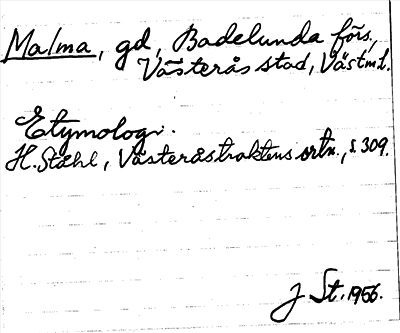 Malma, gd, Badelunda förs.,
Västerås stad, Västml.
Etymologi.
H. Ståhl, Västeråstraktens ortn., s. 309.
J St. 1956.